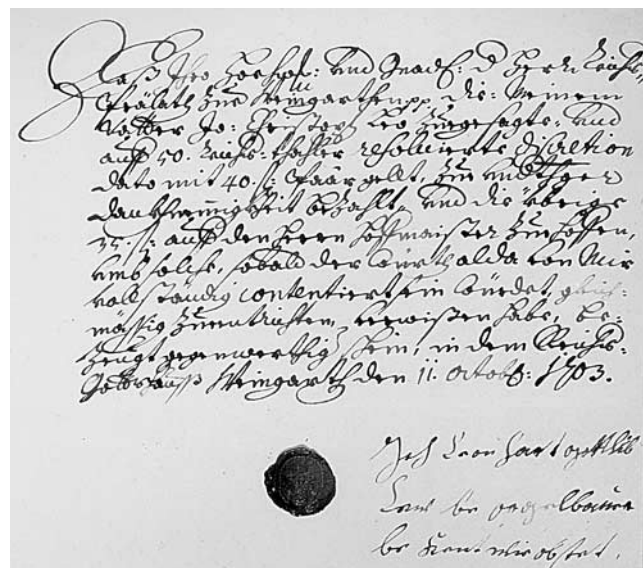 Daß Ihro Hochw: und Gnad: d Herr Reichs
Prälath zue Weingarthen pp. die Meinem
Vatter Jo: Christoph Leo zuegesagte: und
auff 50. Reichs: thaller resolvierte discretion
dato mit 40. f: Paar gellt, zue
danckh bezahlt, und die übrige
35. f: auff den Herrn Hoffmaister zue
umb solche, sobald der Würth alda von Mir
vollständig contentiert sein würdet, gleich:
mässig zue entrichten, verwißen habe, be:
zeugt gegenwerthig schein, in dem Reichs:
Gottshauß Weingarth den 11. octob: 1703.
Jch Leonhart gottlib
Lew be orgelbauer
be kent wie obstet.